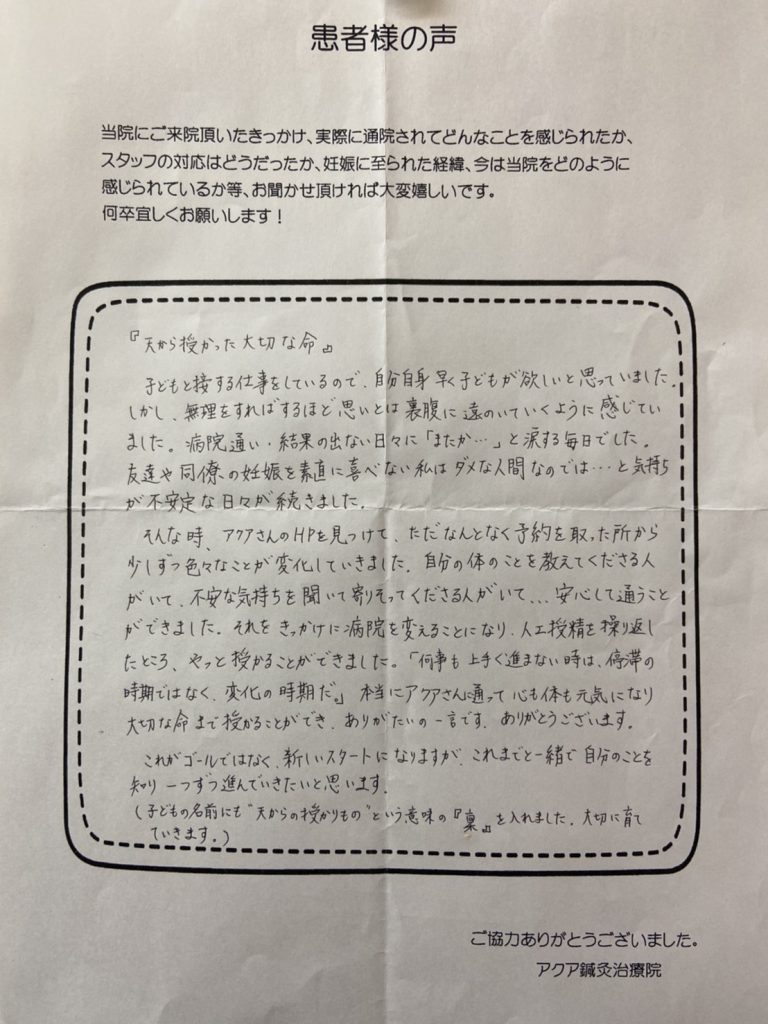 患者様の声
当院にご来院頂いたきっかけ、実際に通院されてどんなことを感じられたか、
スタッフの対応はどうだったか、妊娠に至られた経緯、今は当院をどのように
感じられているか等、お聞かせ頂ければ大変嬉しいです。
何卒宜しくお願いします！
『天から授かった大切な命』
子どもと接する仕事をしているので、自分自身早く子どもが欲しいと思っていました。
しかし、無理をすればするほど思いとは裏腹に遠のいていくように感じてい
ました。病院通い・結果の出ない日々に「またか…」と涙する毎日でした。
友達や同僚の妊娠を素直に喜べない私はダメな人間なのでは…と気持ち
が不安定な日々が続きました。
そんな時、アクアさんのHPを見つけて、ただなんとなく予約を取った所から
少しずつ色々なことが変化していきました。自分の体のことを教えてくださる人
がいて、不安な気持ちを聞いて寄りそってくださる人がいて、…安心して通うこと
ができました。それをきっかけに病院を変えることになり、人工授精を繰り返し
たところ、やっと授かることができました。「何事も上手く進まない時は、停滞の
時期ではなく、変化の時期だ。」本当にアクアさんに通って心も体も元気になり
大切な命まで授かることができ、ありがたいの一言です。ありがとうございます。
これがゴールではなく、新しいスタートになりますが、これまでと一緒で自分のことを
知り一つずつ進んでいきたいと思います。
(子どもの名前にも"天からの授かりもの"という意味の『稟』を入れました。大切に育て
ていきます。)
ご協力ありがとうございました。
アクア鍼灸治療院